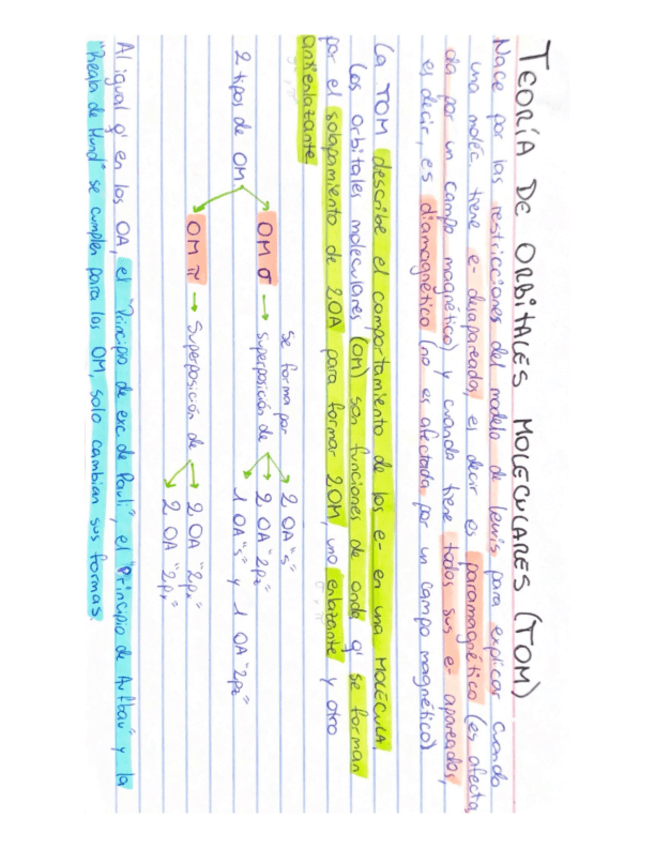 TEORÍA DE ORBITALES MOLECULARES (TOM)
Nace por las restricciones del modelo de Lewis para explicar cuando
una moléc. tiene e- desapareados, es decir es paramagnético (es afecta
da por un campo magnético) y cuando tiene todos sus e- apareados,
es decir, es diamagnético (no es afectada por un campo magnético)
La TOM describe el comportamiento de los e- en una MOLÉCULA.
Los orbitales moleculares (OM) son funciones de onda q' se forman
por el solapamiento de 2OA para formar 2OM, uno enlazante y otro
antienlazante.
σ, π
σ*, π*
2 tipos de OM
OM σ → Superposición de
Se forma por
2 OA "s"
2 OA "2pz"
1 OA "s" y 1 OA "2pz"
OM π → Superposición de
2 OA "2px"
2 OA "2py"
Al igual q' en los OA, el "Principio de exc. de Pauli", el "Principio de Aufbau" y la
"Regla de Hund" se cumplen para los OM, solo cambian sus formas.